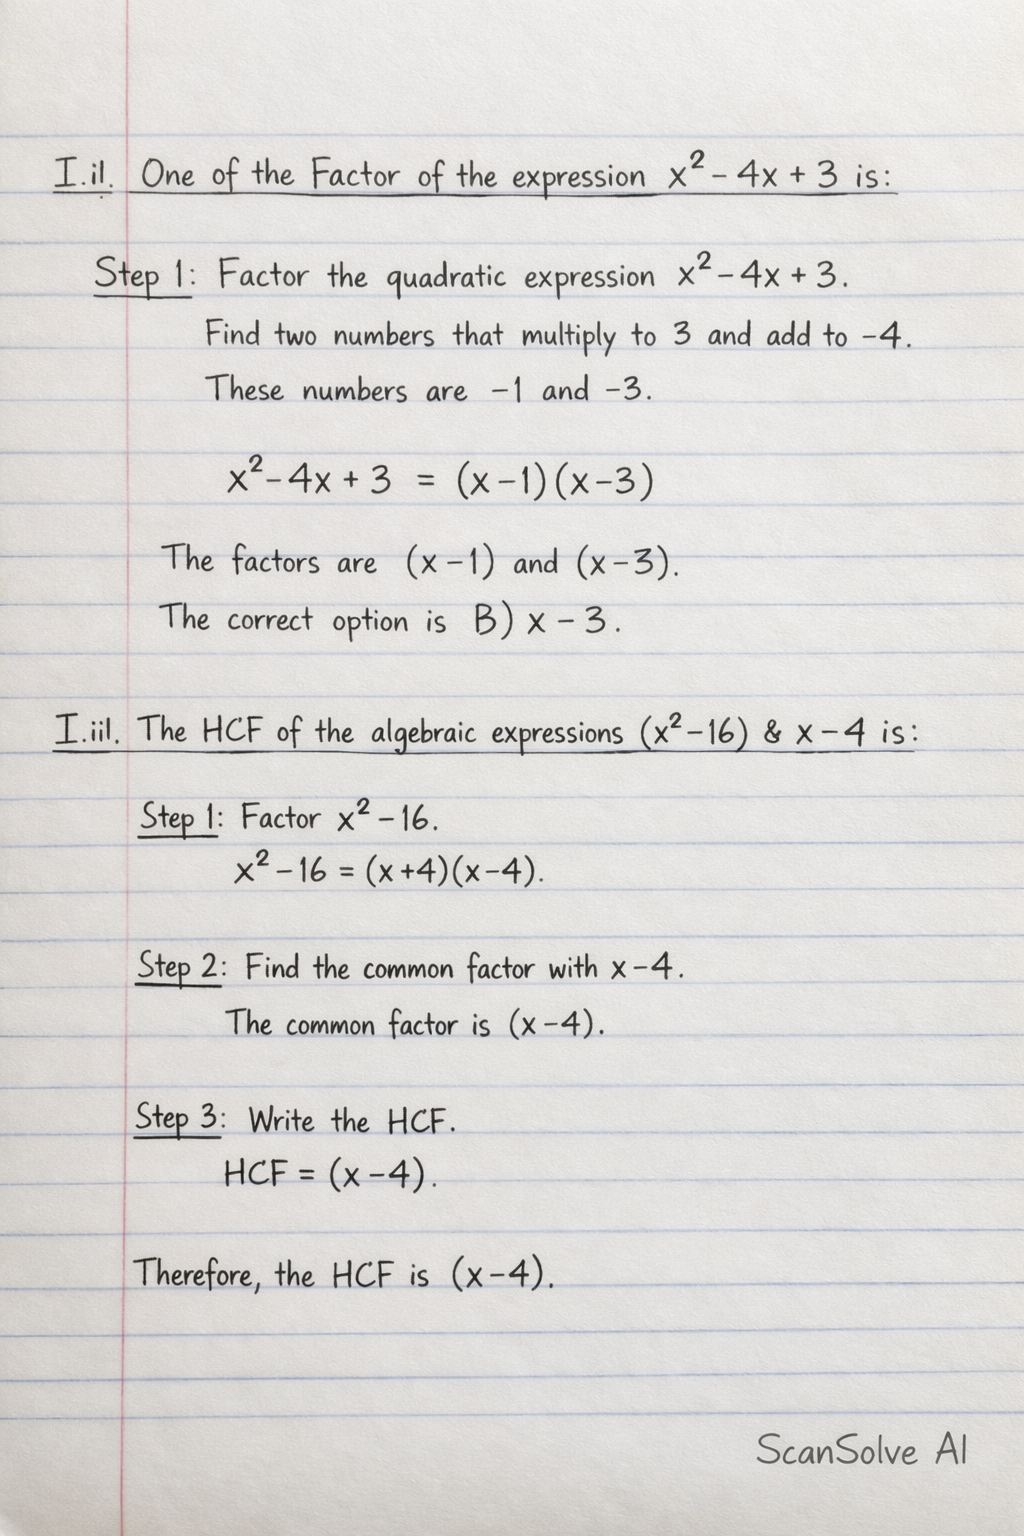 I.ii. One of the Factor of the expression x² - 4x + 3 is:
Step 1: Factor the quadratic expression x² - 4x + 3.
Find two numbers that multiply to 3 and add to -4.
These numbers are -1 and -3.
x² - 4x + 3 = (x - 1)(x - 3)
The factors are (x - 1) and (x - 3).
The correct option is B) x - 3.
I.iii. The HCF of the algebraic expressions (x² - 16) & x - 4 is:
Step 1: Factor x² - 16.
x² - 16 = (x + 4)(x - 4).
Step 2: Find the common factor with x - 4.
The common factor is (x - 4).
Step 3: Write the HCF.
HCF = (x - 4).
Therefore, the HCF is (x - 4).
ScanSolve AI